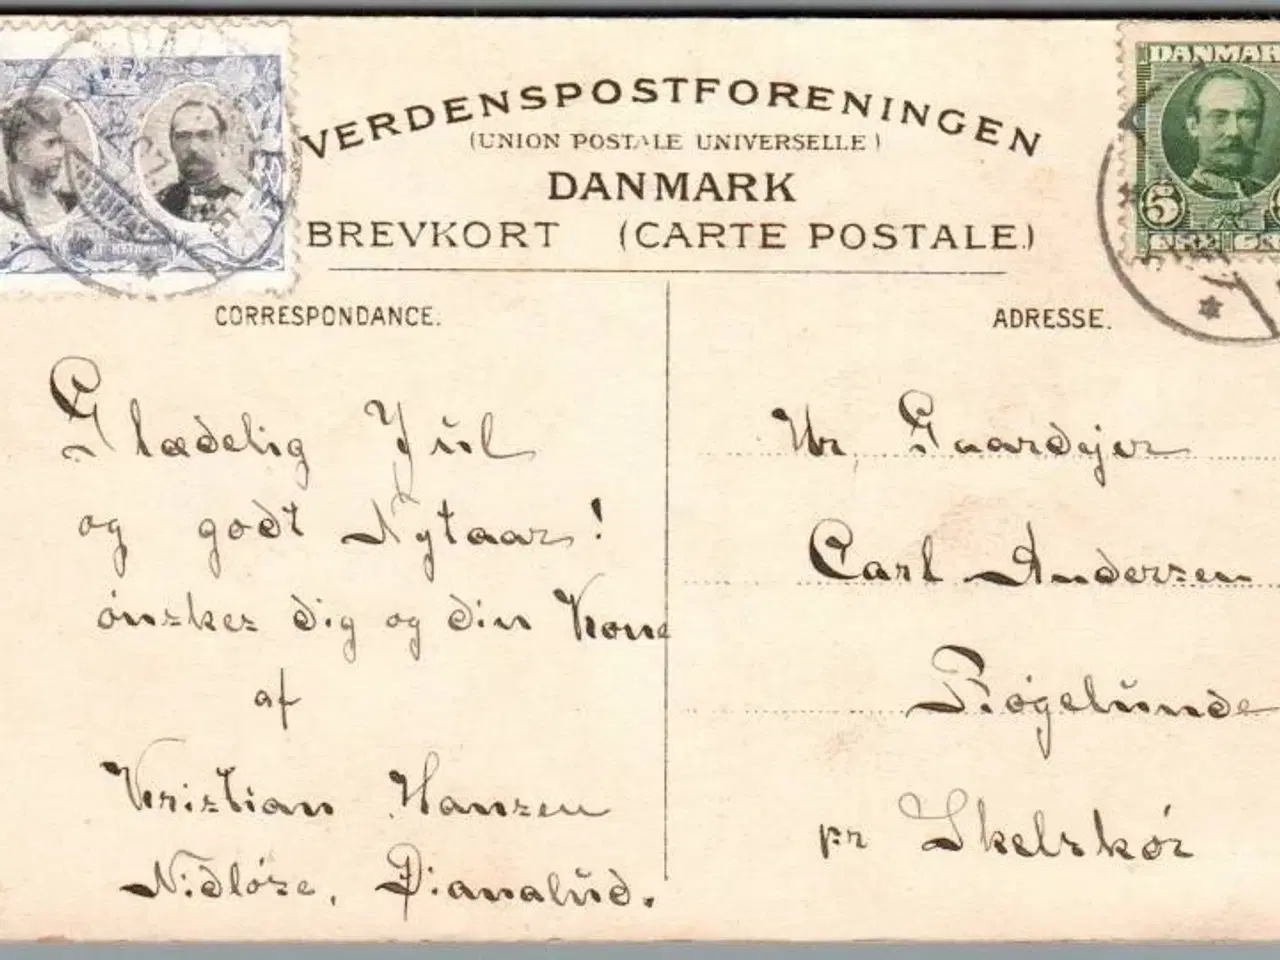 VERDENSPOSTFORENINGEN
(UNION POSTALE UNIVERSELLE)
DANMARK
BREVKORT (CARTE POSTALE.)
DANMAR
5
CORRESPONDANCE.
ADRESSE.
Glædelig Jul
og godt Nytaar!
ønsker dig og din Kone
af
Kristian Hansen
Nidløse, Dianalund.
Hr. Gaardejer
Carl Andersen
Bøgelunde
pr Skelskør